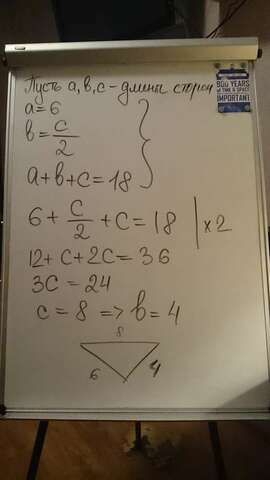 Пусть a, b, c - длины сторон
a = 6
b = c/2
a + b + c = 18
6 + c/2 + c = 18 | x 2
12 + c + 2c = 36
3c = 24
c = 8 => b = 4
8
6 4
800 YEARS
IMPORTANT